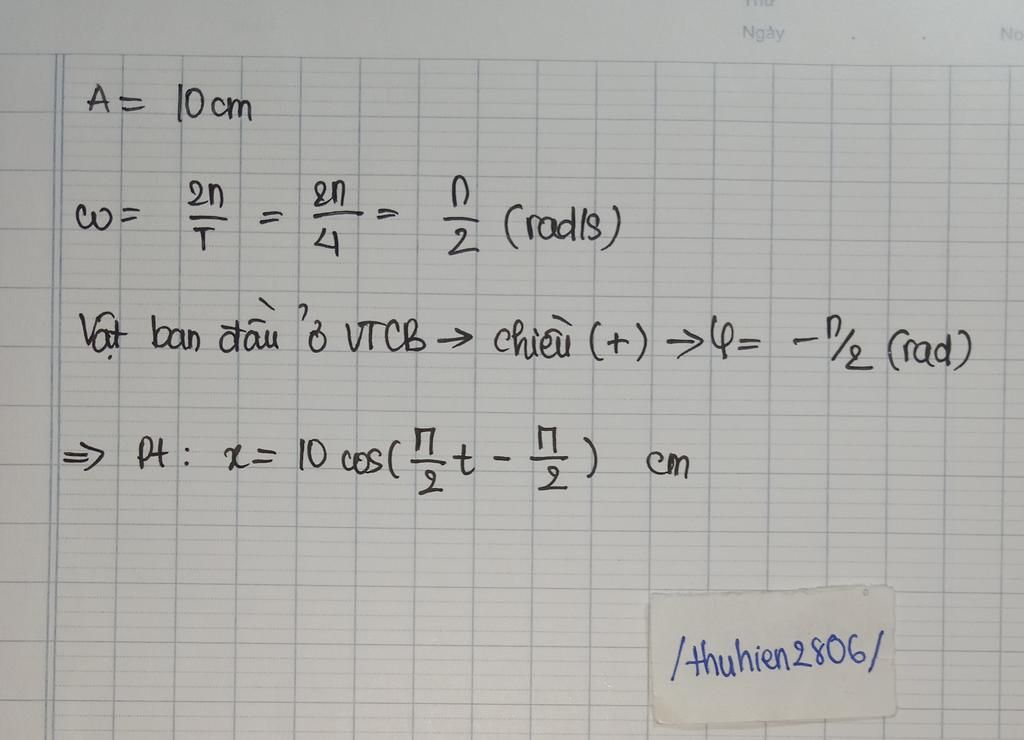 Thứ
Ngày . . No
A = 10 cm
ω = 2π/T = 2π/4 = π/2 (rad/s)
Vật ban đầu ở VTCB → chiều (+) → φ = -π/2 (rad)
⇒ Pt : x = 10 cos(π/2 t - π/2) cm
/thuhien2806/